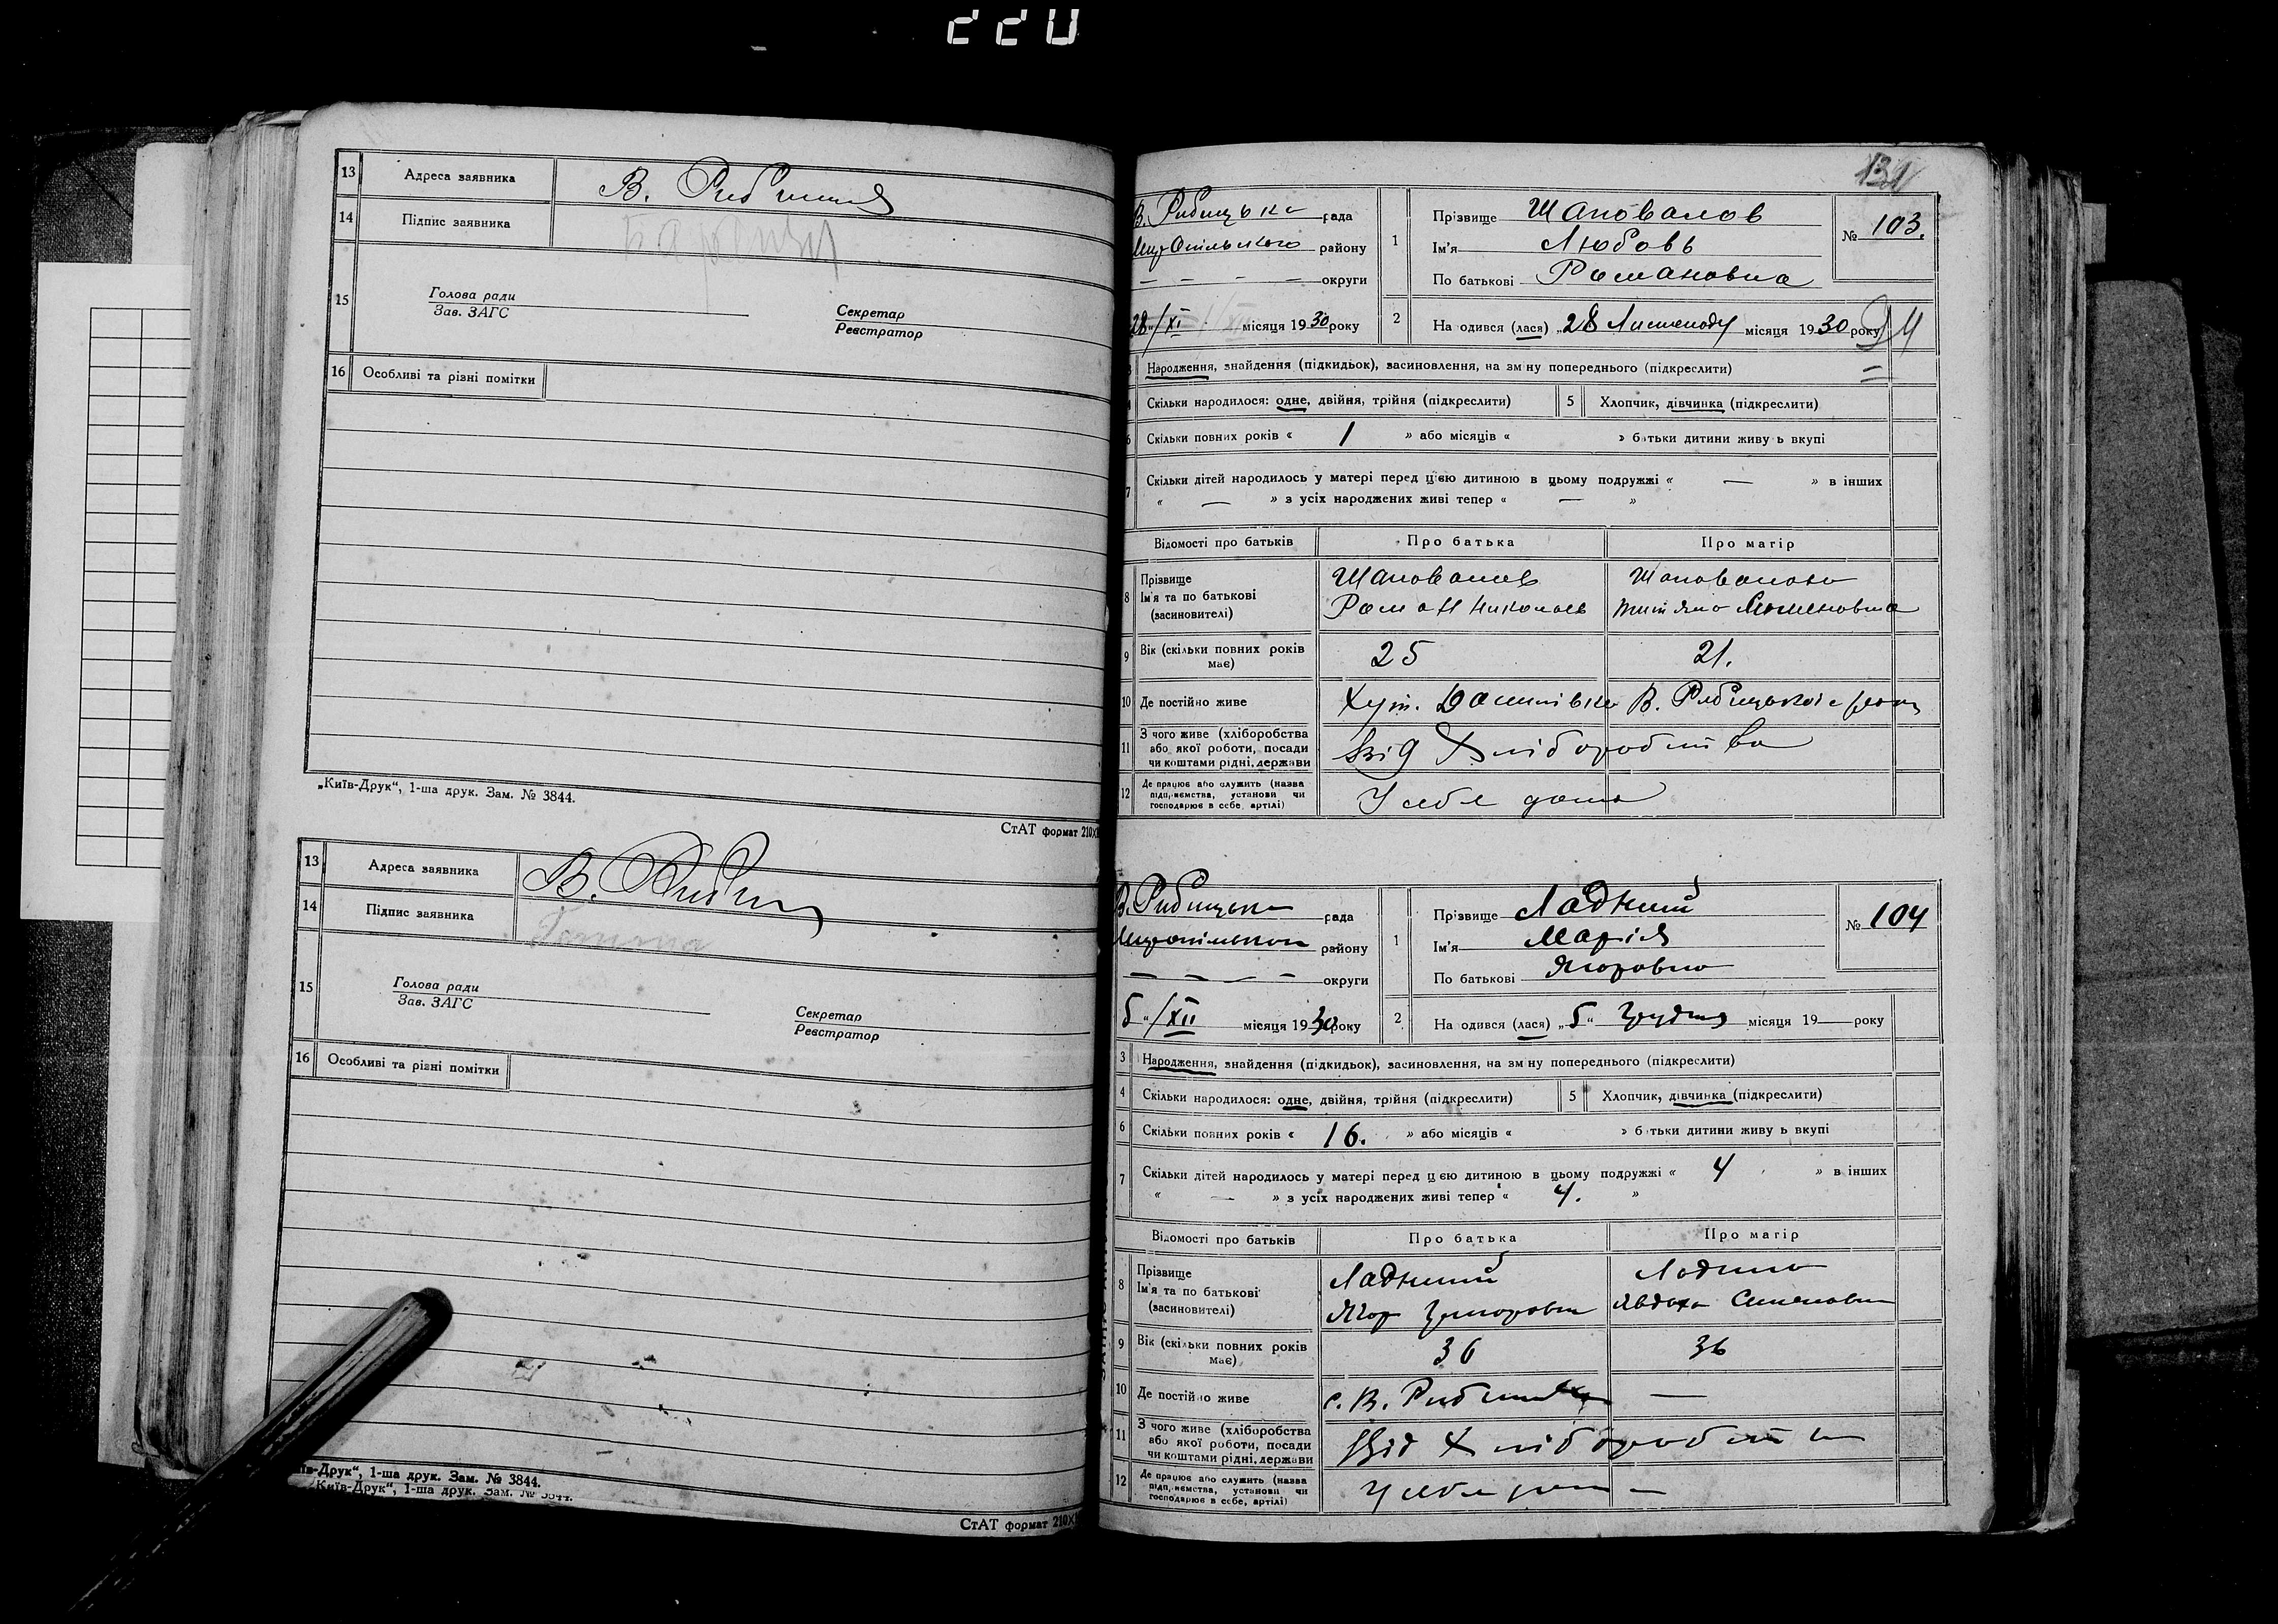 220
13 Адреса заявника В. Рибиця
14 Підпис заявника
15 Голова ради
Зав. ЗАГС
Секретар
Реєстратор
16 Особливі та різні помітки
„Київ-Друк“, 1-ша друк. Зам. № 3844.
СтАТ формат 210×
13 Адреса заявника В. Рибиц
14 Підпис заявника
15 Голова ради
Зав. ЗАГС
Секретар
Реєстратор
16 Особливі та різні помітки
їв-Друк“, 1-ша друк. Зам. № 3844.
Київ-Друк“, 1-ша друк. Зам. № 3844.
СтАТ формат 210×
131
В. Рибицька рада
району
— — — — округи
28“/XI місяця 1930 року
1 Прізвище Шаповалов
Ім'я Любовь
По батькові Романовна
№ 103.
2 На одився (лася) „28 Листопаду місяця 1930 року
Народження, знайдення (підкидьок), засиновлення, на зм ну попереднього (підкреслити)
Скільки народилося: одне, двійня, трійня (підкреслити) 5 Хлопчик, дівчинка (підкреслити)
6 Скільки повних років « 1 » або місяців « » батьки дитини живу ь вкупі
7 Скільки дітей народилось у матері перед цією дитиною в цьому подружжі « — » в інших
« — » з усіх народжених живі тепер « — »
Відомості про батьків Про батька Про матір
8 Прізвище Шаповалов Шаповалова
Ім'я та по батькові Роман Николаев
(засиновителі)
9 Вік (скільки повних років має) 25 21.
10 Де постійно живе Хут. В. Рибицької ради
11 З чого живе (хліборобства
або якої роботи, посади
чи коштами рідні, держави від Хліборобства
12 Де працює або служить (назва
підприємства, установи чи
господарює в себе, артілі) У себе дома
В. Рибицька рада
району
— — — — округи
5“/XII місяця 1930 року
1 Прізвище Ладний
Ім'я Марія
По батькові Ягоровна
№ 104
2 На одився (лася) „5“ Грудня місяця 19 року
3 Народження, знайдення (підкидьок), засиновлення, на зм ну попереднього (підкреслити)
4 Скільки народилося: одне, двійня, трійня (підкреслити) 5 Хлопчик, дівчинка (підкреслити)
6 Скільки повних років « 16. » або місяців « » батьки дитини живу ь вкупі
7 Скільки дітей народилось у матері перед цією дитиною в цьому подружжі « 4 » в інших
« — » з усіх народжених живі тепер « 4. »
Відомості про батьків Про батька Про матір
8 Прізвище Ладний Ладна
Ім'я та по батькові Ягор Явдоха
(засиновителі)
9 Вік (скільки повних років має) 36 36
10 Де постійно живе с. В. Рибиця —
11 З чого живе (хліборобства
або якої роботи, посади
чи коштами рідні, держави Від Хліборобства
12 Де працює або служить (назва
підприємства, установи чи
господарює в себе, артілі) У себе дома —